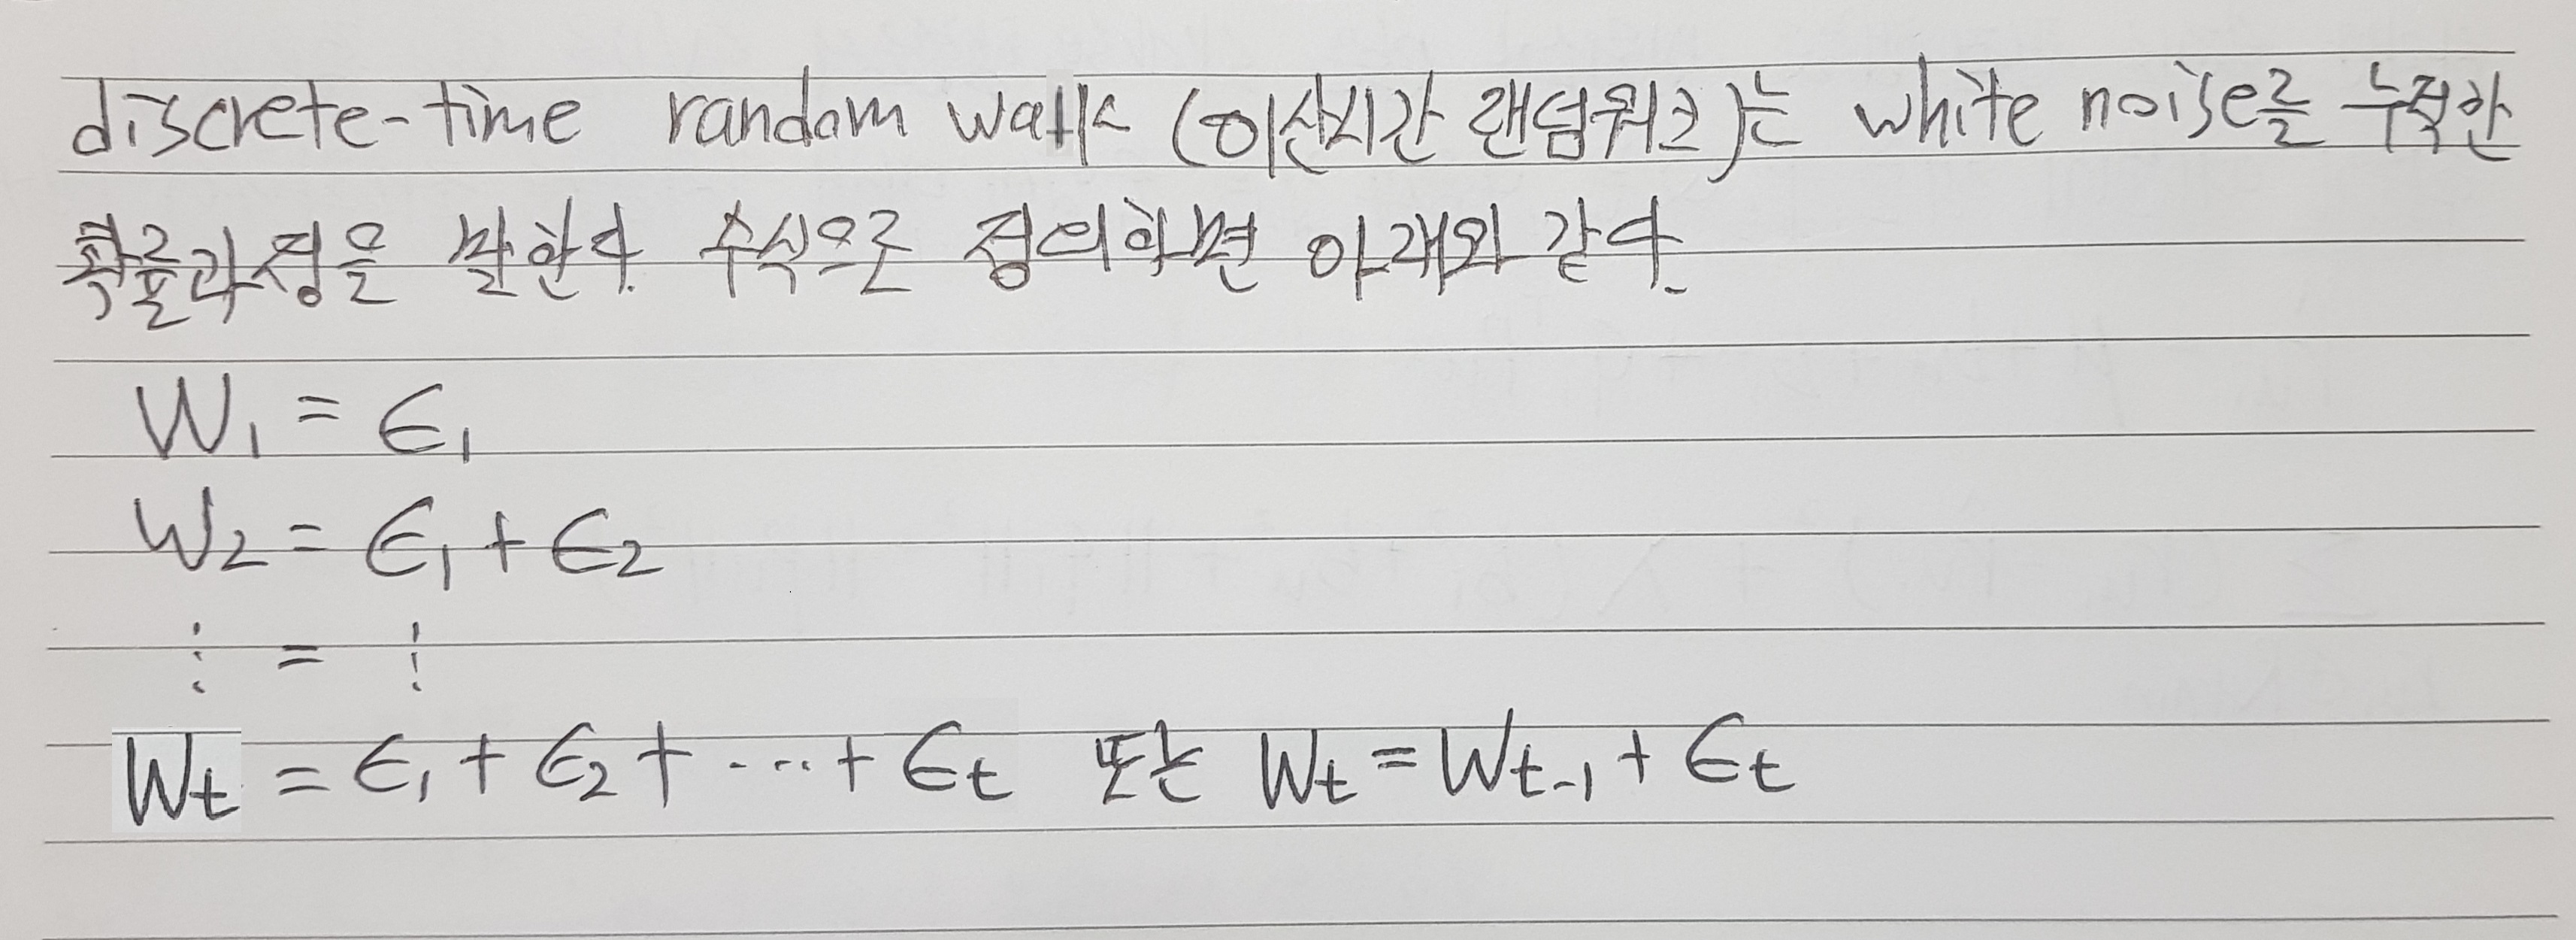 discrete-time random walk (이산시간 랜덤워크)는 white noise를 누적한
확률과정을 말한다. 수식으로 정의하면 아래와 같다.
W₁ = ϵ₁
W₂ = ϵ₁ + ϵ₂
⋮ = ⋮
Wₜ = ϵ₁ + ϵ₂ + ⋯ + ϵₜ 또는 Wₜ = Wₜ₋₁ + ϵₜ